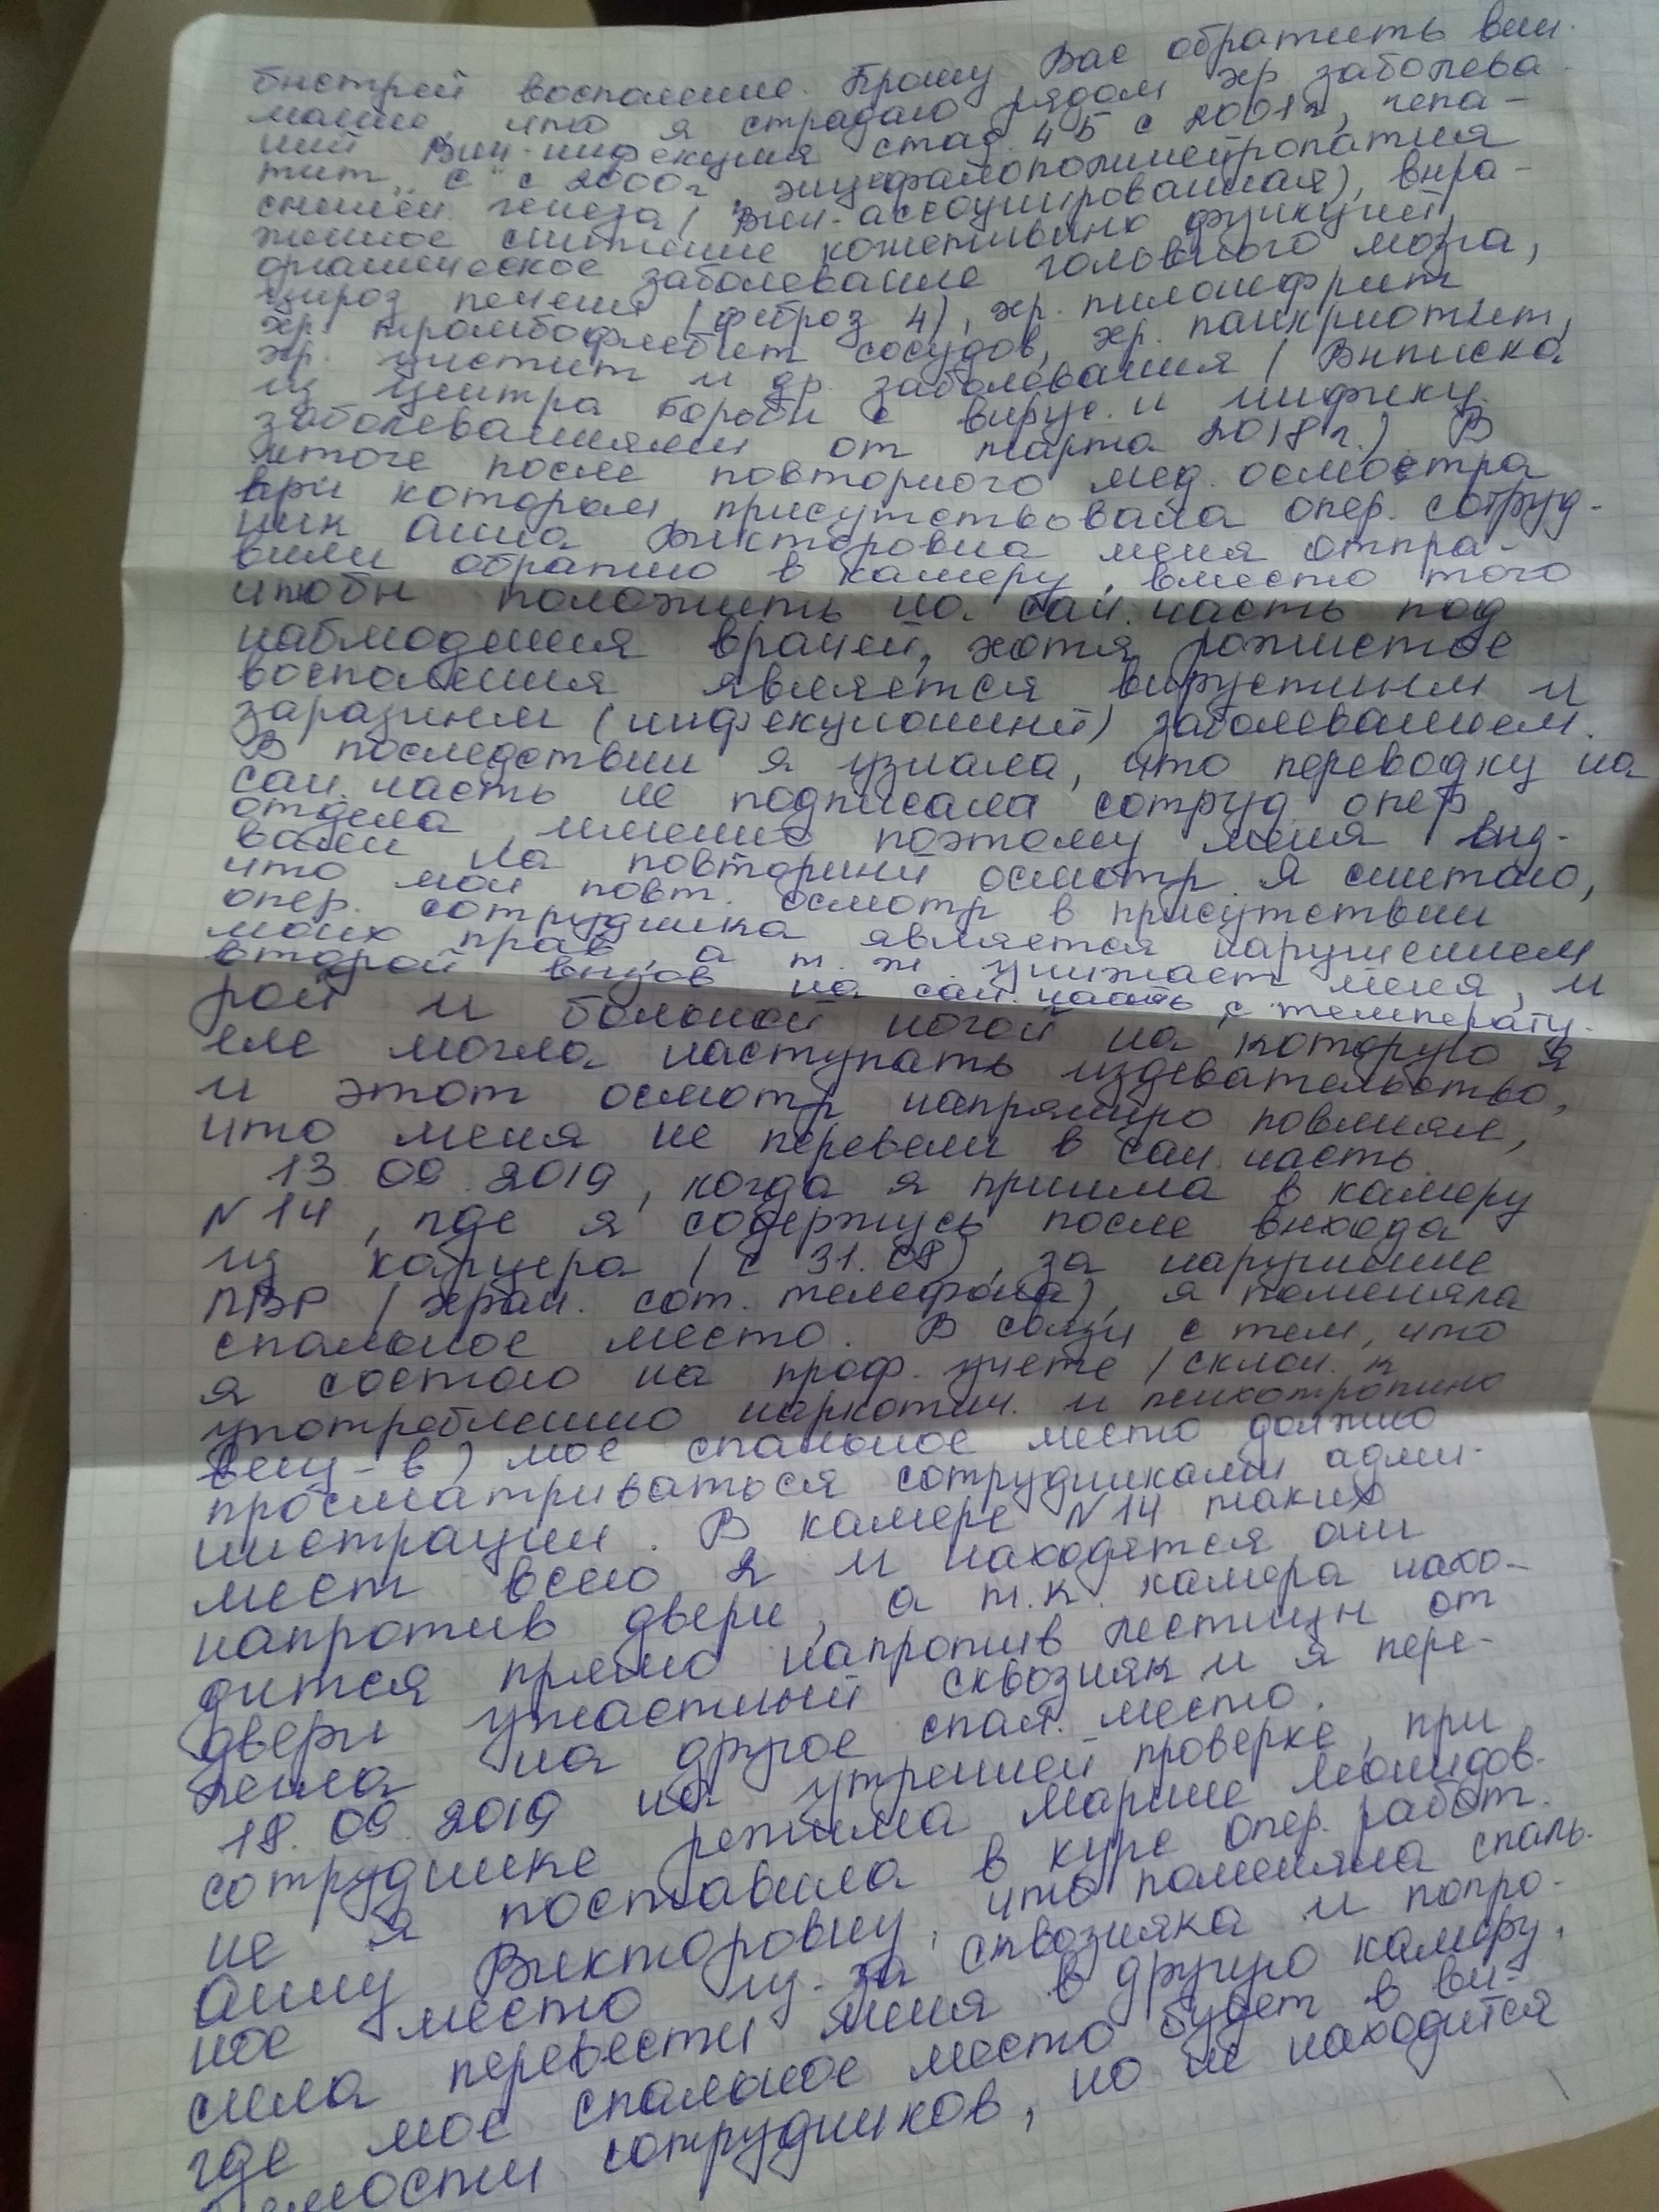 быстрей воспаление. Прошу Вас обратить вни-
мание, что я страдаю рядом хр. заболева-
ний ВИЧ-инфекция стад. 4Б с 2001г, гепа-
тит „С" с 2000г, энцефалополинейропатия
смешен. генеза (ВИЧ-ассоциированная), выра-
женное снижение когнетивно функций,
органическое заболевание головного мозга,
цироз печени (феброз 4), хр. пилонефрит
хр. тромбофлебит сосудов, хр. панкриотит,
хр. цистит и др. заболевания (Выписка
из Центра борьбы с вирус. и инфекц.
заболеваниями от марта 2018г.) В
итоге после повторного мед. осмостра
при котором присутствовала опер. сотруд-
ник Анна Викторовна меня отпра-
вили обратно в камеру, вместо того
чтобы положить на сан. часть под
наблюдения врачей, хотя рожистое
воспаления является вирустным и
заразным (инфекционный) заболеванием.
В последствии я узнала, что переводку на
сан. часть не подписала сотруд. опер.
отдела, именно поэтому меня выд-
вали на повторный осмотр. Я считаю,
что мой повт. осмотр в присутствии
опер. сотрудника является нарушением
моих прав, а т. ж. унижает меня, и
второй вызов на сан. часть с температу-
рой и больной ногой на которую я
еле могла наступать издевательство,
и этот осмотр напрямую повлиял,
что меня не перевели в сан. часть.
13.09.2019, когда я пришла в камеру
N 14, где я содержусь после выхода
из карцера (с 31.08), за нарушение
ПВР (хран. сот. телефона), я поменяла
спальное место. В связи с тем, что
я состою на проф. учете (склон. к
употреблению наркотич. и психотропино
вещ-в) мое спальное место должно
просматриваться сотрудниками адми-
нистрации. В камере N 14 таких
мест всего 2 и находятся они
напротив двери, а т.к. камера нахо-
дится прямо напротив лестницы от
двери ужастный сквозняк и я пере-
легла на другое спал. место.
18.09.2019 на утренней проверке, при
сотруднике режима Марине Леонидов-
не я поставила в курс опер. работ.
Анну Викторовну, что поменяла спаль-
ное место из-за сквозняка и попро-
сила перевести меня в другую камеру,
где мое спальное место будет в ви-
димости сотрудников, но не находится